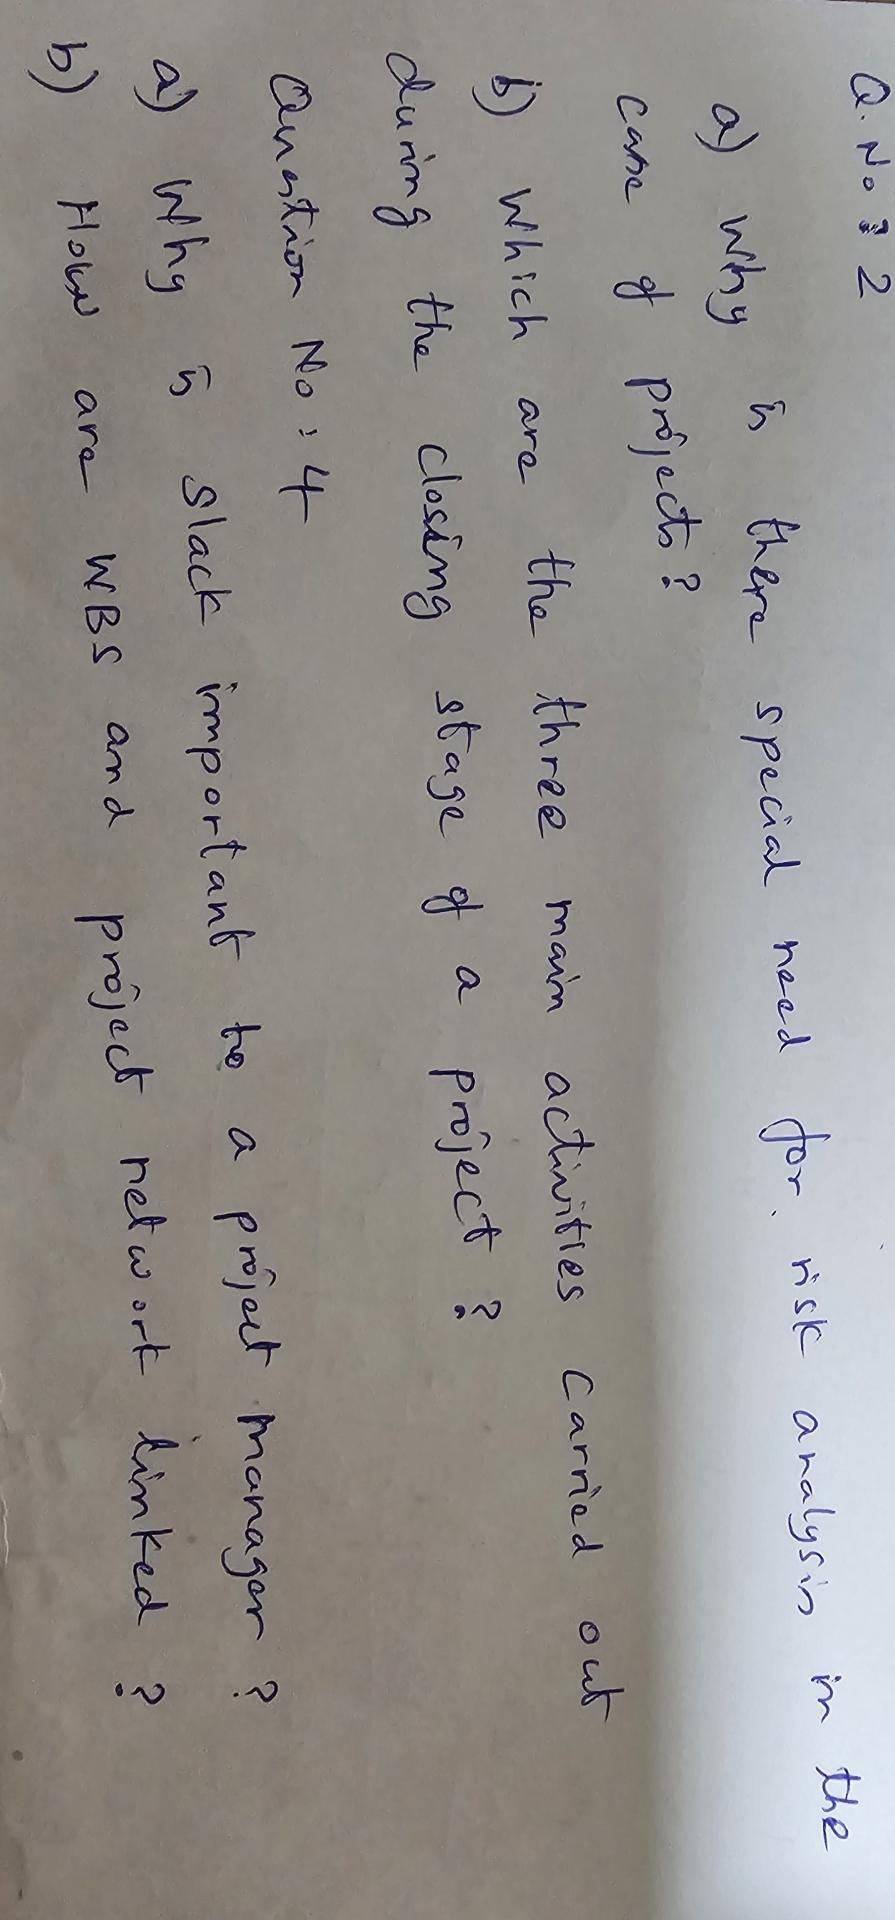 Q. No: 2
a) Why is there special need for risk analysis in the
case of projects?
b) Which are the three main activities carried out
during the closing stage of a project?
Question No: 4
a) Why is slack important to a project manager?
b) How are WBS and project network linked?